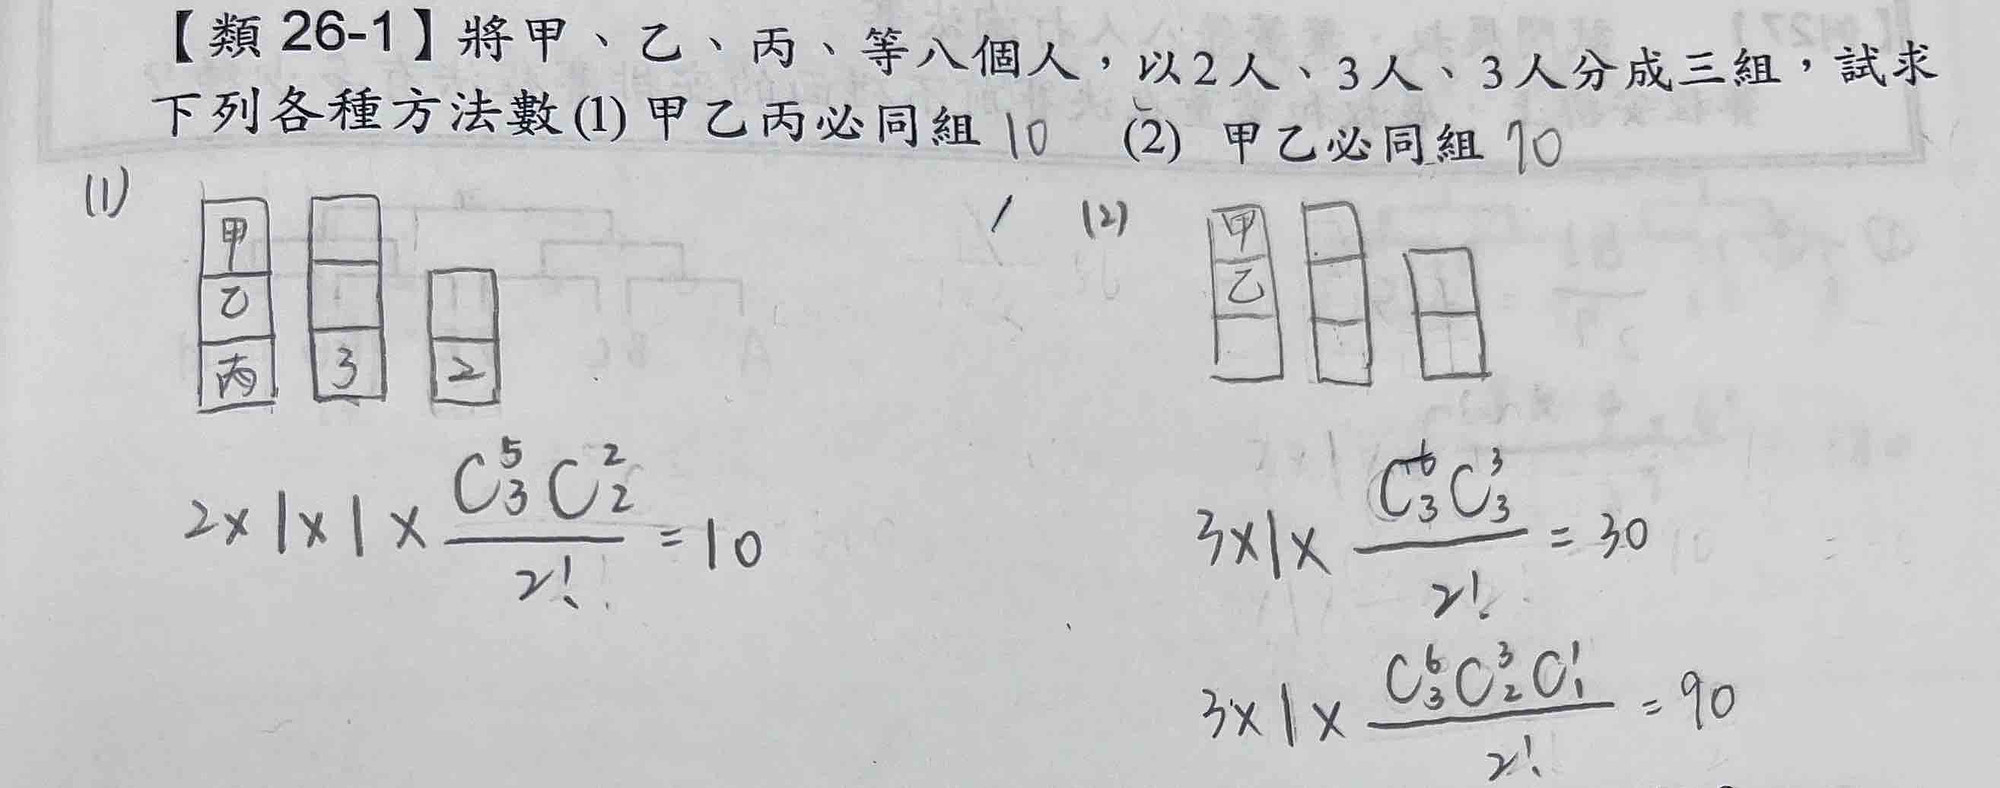 【類 26-1】將甲、乙、丙、等八個人，以2人、3人、3人分成三組，試求
下列各種方法數(1) 甲乙丙必同組 10 (2) 甲乙必同組 70
(1)
甲
乙
丙 3 2
2×1×1× C⁵₃C²₂ / 2! = 10
(2)
甲
乙
3×1× C⁶₃C³₃ / 2! = 30
3×1× C⁶₃C³₂C¹₁ / 2! = 90